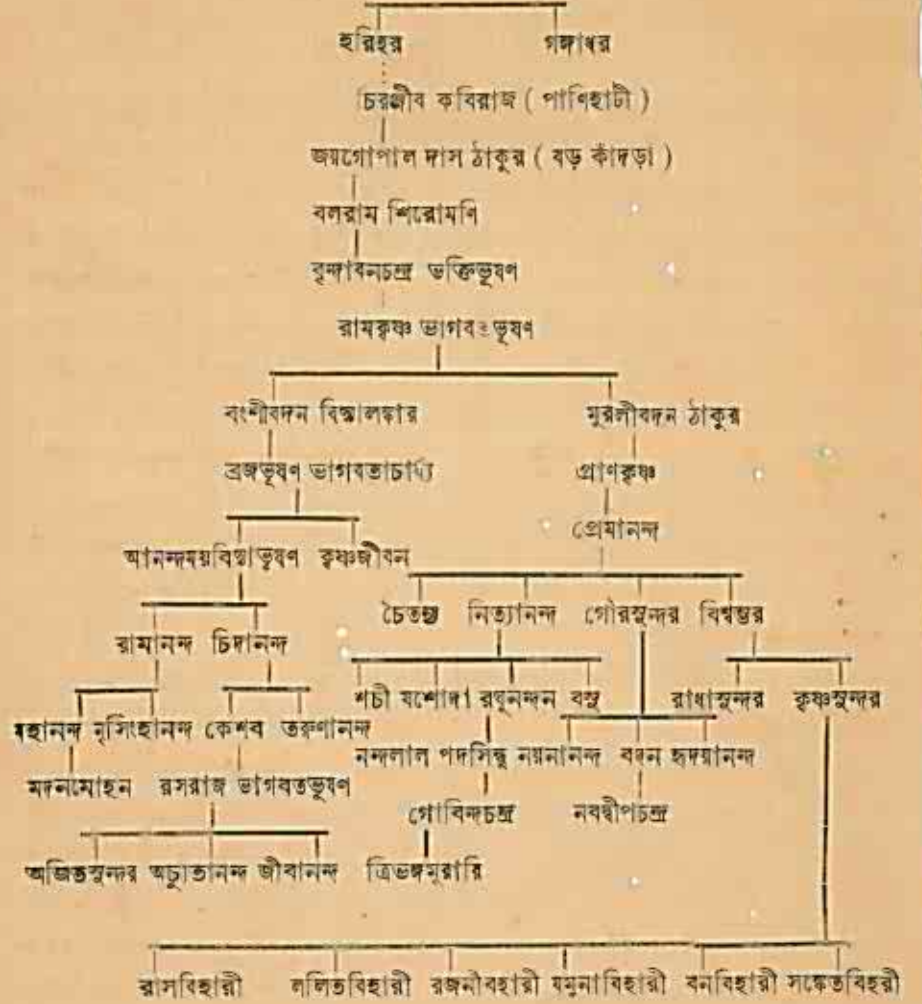 হরিহর গঙ্গাধর
চিরঞ্জীব কবিরাজ ( পাণিহাটী )
জয়গোপাল দাস ঠাকুর ( বড় কাঁদড়া )
বলরাম শিরোমণি
বৃন্দাবনচন্দ্র ভক্তিভূষণ
রামকৃষ্ণ ভাগবতভূষণ
বংশীবদন বিদ্যালঙ্কার মুরলীবদন ঠাকুর
ব্রজভূষণ ভাগবতাচার্য্য প্রাণকৃষ্ণ
প্রেমানন্দ
আনন্দময়বিদ্যাভূষণ কৃষ্ণজীবন
চৈতন্য নিত্যানন্দ গৌরসুন্দর বিশ্বম্ভর
রামানন্দ চিদানন্দ
শচী যশোদা রঘুনন্দন বসু রাধাসুন্দর কৃষ্ণসুন্দর
মহানন্দ নৃসিংহানন্দ কেশব তরুণানন্দ
নন্দলাল পদসিন্ধু নয়নানন্দ বদন হৃদয়ানন্দ
মদনমোহন রসরাজ ভাগবতভূষণ
গোবিন্দচন্দ্র নবদ্বীপচন্দ্র
অজিতসুন্দর অচ্যুতানন্দ জীবানন্দ ত্রিভঙ্গমুরারি
রাসবিহারী ললিতবিহারী রজনীবহারী যমুনাবিহারী বনবিহারী সঙ্কেতবিহরী